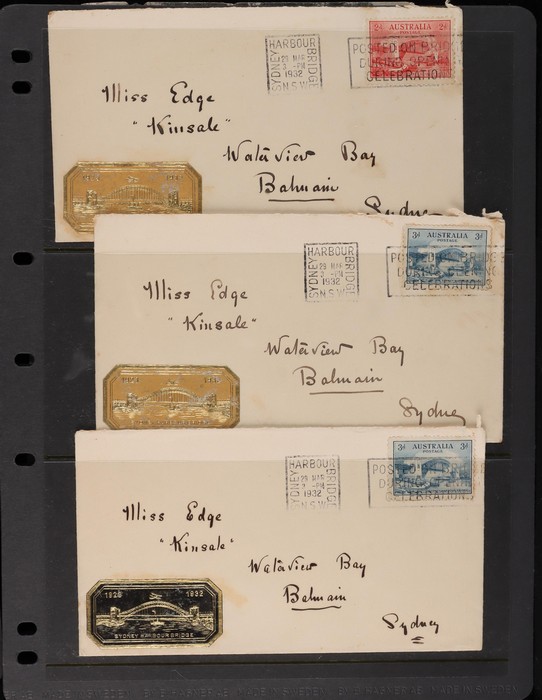 AUSTRALIA
POSTAGE
2ᵈ 2ᵈ
SYDNEY HARBOUR BRIDGE N.S.W
29 MAR
3 -PM
1932
POSTED ON BRIDG
DURING OPENI
CELEBRATION
Miss Edge
"Kinsale"
Waterview Bay
Balmain
Sydney
AUSTRALIA
POSTAGE
3ᵈ 3ᵈ
SYDNEY HARBOUR BRIDGE N.S.W
29 MAR
3 -PM
1932
POSTED ON BRIDGE
DURING OPENING
CELEBRATIONS
Miss Edge
"Kinsale"
Waterview Bay
Balmain
Sydney
AUSTRALIA
POSTAGE
3ᵈ 3ᵈ
SYDNEY HARBOUR BRIDGE N.S.W
29 MAR
-PM
1932
POSTED ON BRIDGE
DURING OPENING
CELEBRATIONS
Miss Edge
"Kinsale"
Waterview Bay
Balmain
Sydney
1923 1932
SYDNEY HARBOUR BRIDGE
MADE IN SWEDEN